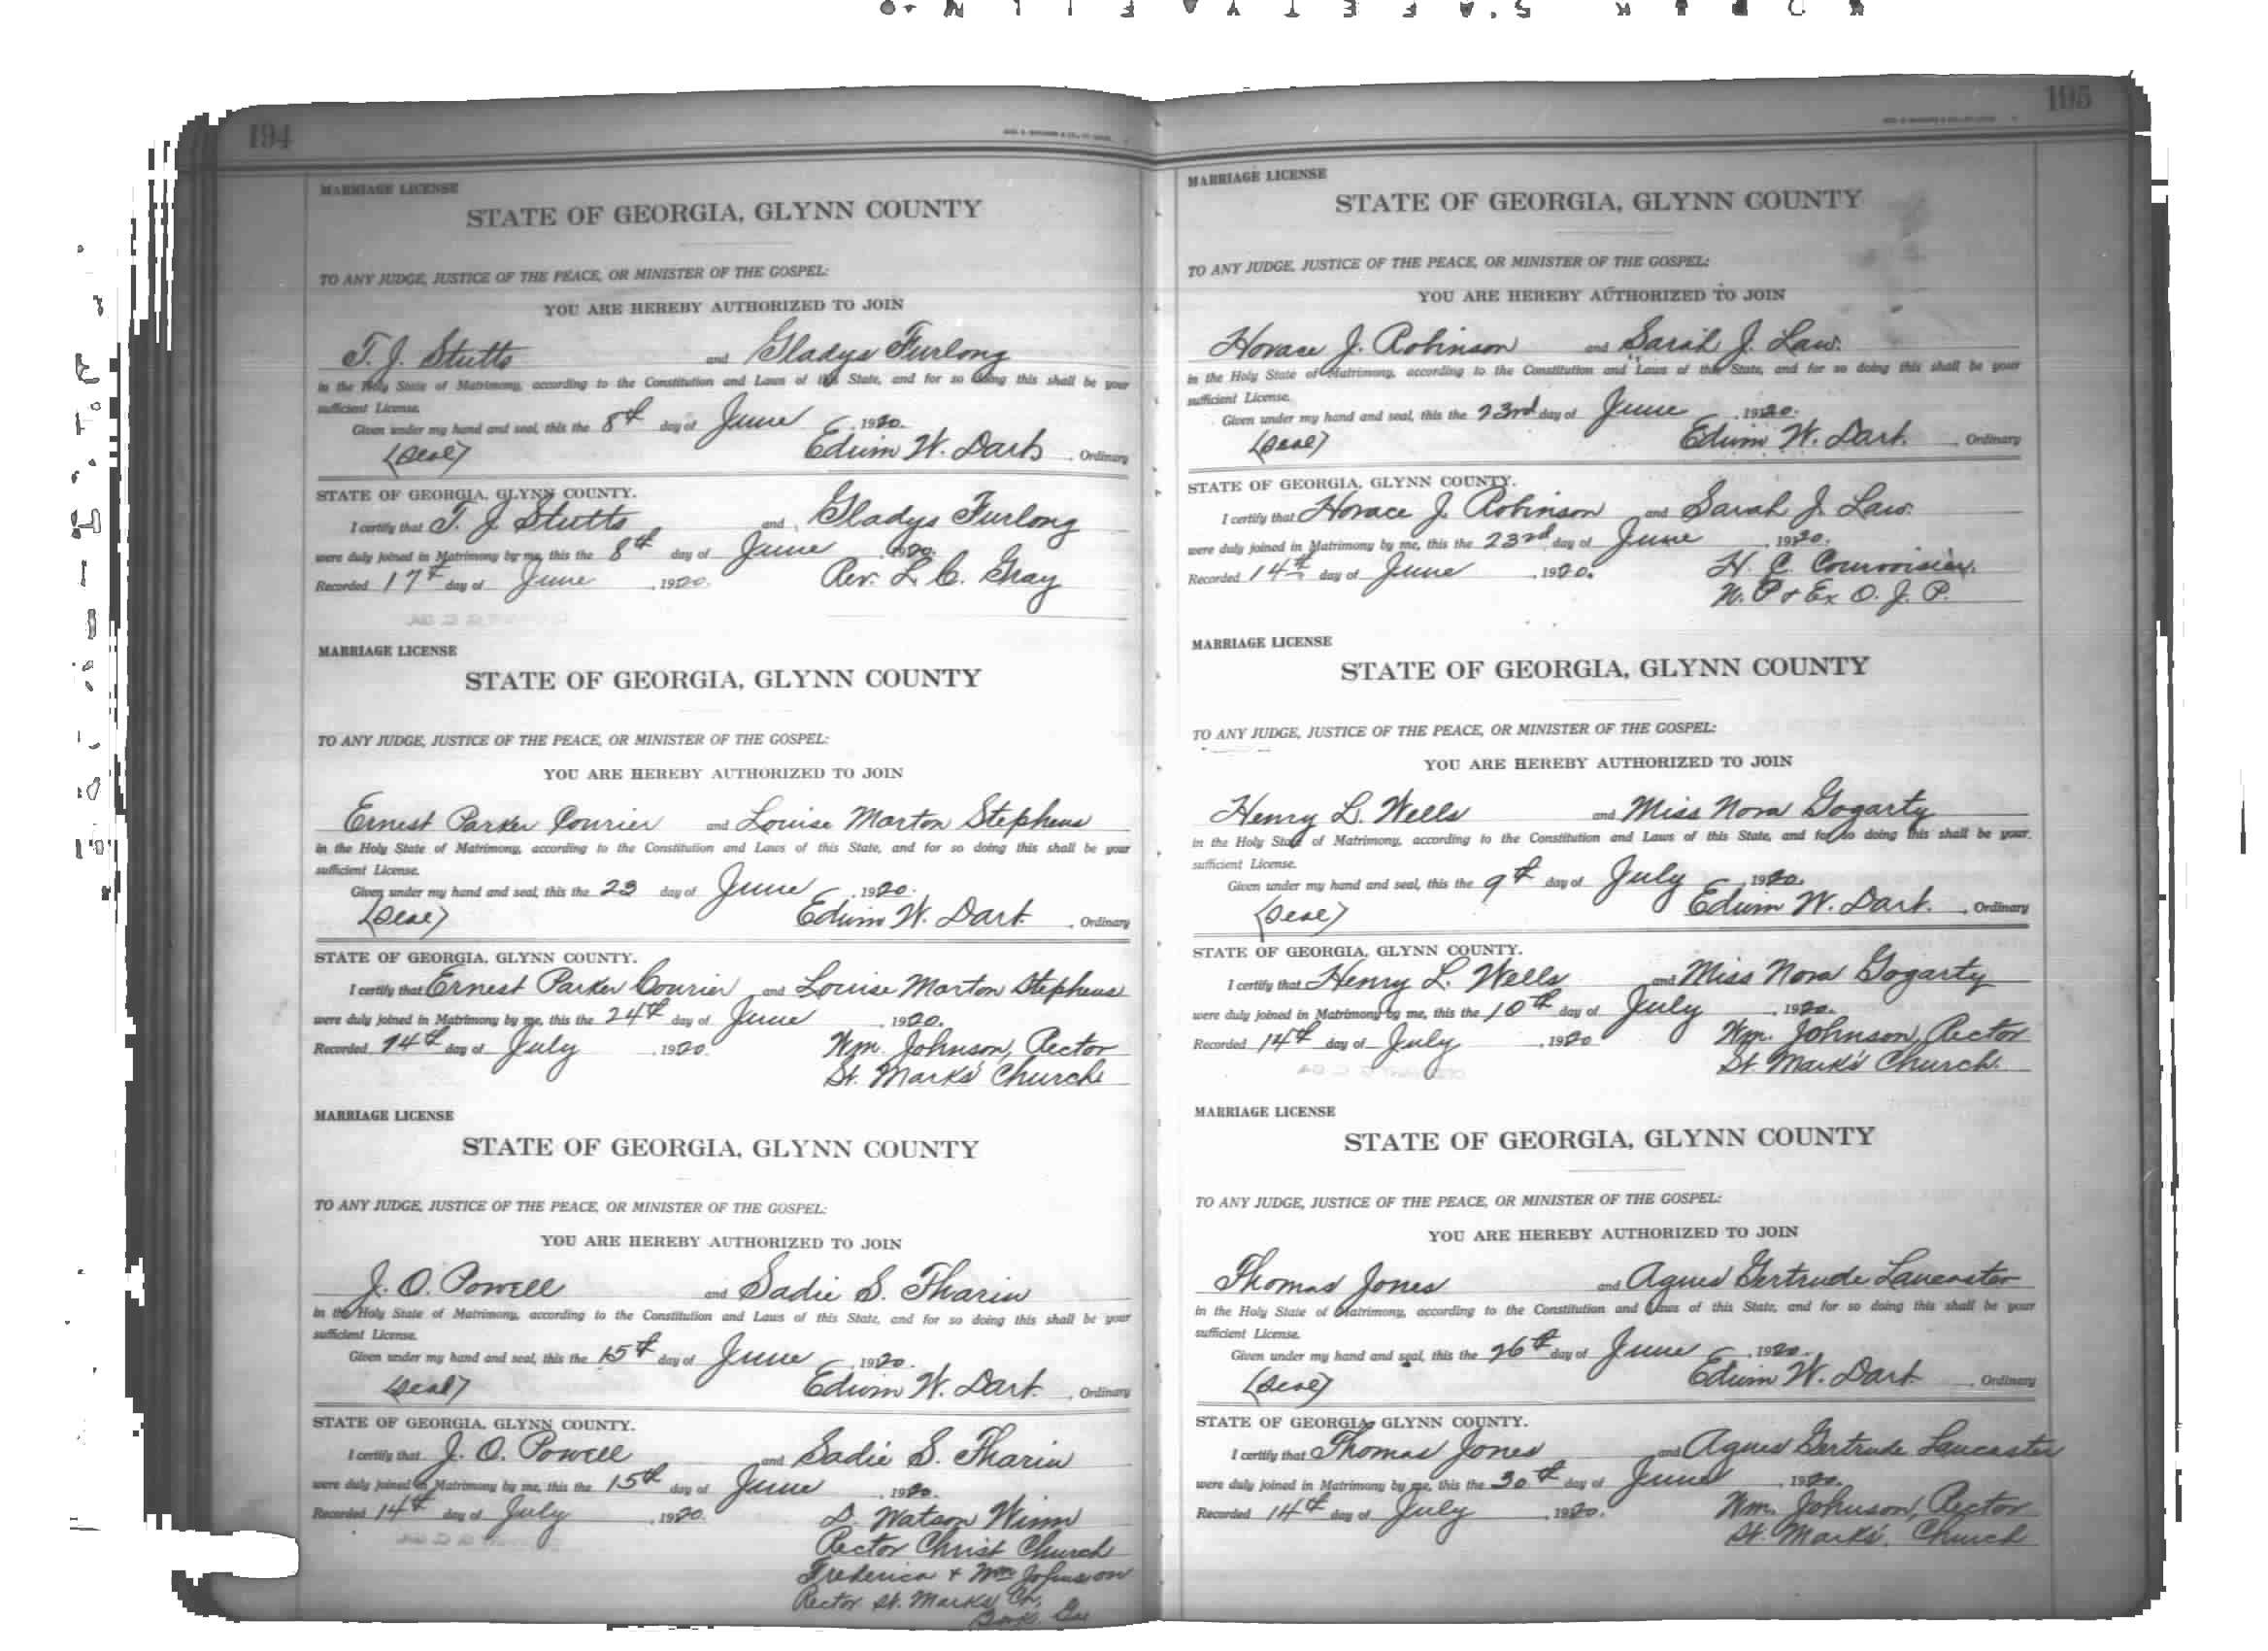 194
MARRIAGE LICENSE
STATE OF GEORGIA, GLYNN COUNTY
TO ANY JUDGE, JUSTICE OF THE PEACE, OR MINISTER OF THE GOSPEL:
YOU ARE HEREBY AUTHORIZED TO JOIN
T. J. Stutts and Gladys Furlong
in the Holy State of Matrimony, according to the Constitution and Laws of this State, and for so doing this shall be your
sufficient License.
Given under my hand and seal, this the 8th day of June, 1920.
(Seal) Edwin W. Dart, Ordinary
STATE OF GEORGIA, GLYNN COUNTY.
I certify that T. J. Stutts and Gladys Furlong
were duly joined in Matrimony by me, this the 8th day of June, 1920.
Recorded 17th day of June, 1920. Rev. L. C. Gray
MARRIAGE LICENSE
STATE OF GEORGIA, GLYNN COUNTY
TO ANY JUDGE, JUSTICE OF THE PEACE, OR MINISTER OF THE GOSPEL:
YOU ARE HEREBY AUTHORIZED TO JOIN
Ernest Parker Courier and Louise Morton Stephens
in the Holy State of Matrimony, according to the Constitution and Laws of this State, and for so doing this shall be your
sufficient License.
Given under my hand and seal, this the 23 day of June, 1920.
(Seal) Edwin W. Dart, Ordinary
STATE OF GEORGIA, GLYNN COUNTY.
I certify that Ernest Parker Courier and Louise Morton Stephens
were duly joined in Matrimony by me, this the 24th day of June, 1920.
Recorded 14th day of July, 1920. Wm. Johnson, Rector
St. Marks' Church
MARRIAGE LICENSE
STATE OF GEORGIA, GLYNN COUNTY
TO ANY JUDGE, JUSTICE OF THE PEACE, OR MINISTER OF THE GOSPEL:
YOU ARE HEREBY AUTHORIZED TO JOIN
J. O. Powell and Sadie S. Tharin
in the Holy State of Matrimony, according to the Constitution and Laws of this State, and for so doing this shall be your
sufficient License.
Given under my hand and seal, this the 15th day of June, 1920.
(Seal) Edwin W. Dart, Ordinary
STATE OF GEORGIA, GLYNN COUNTY.
I certify that J. O. Powell and Sadie S. Tharin
were duly joined in Matrimony by me, this the 15th day of June, 1920.
Recorded 14th day of July, 1920. D. Watson Winn
Rector Christ Church
Frederica & Wm Johnson
Rector St. Marks Ch,
Ga
195
MARRIAGE LICENSE
STATE OF GEORGIA, GLYNN COUNTY
TO ANY JUDGE, JUSTICE OF THE PEACE, OR MINISTER OF THE GOSPEL:
YOU ARE HEREBY AUTHORIZED TO JOIN
Horace J. Robinson and Sarah J. Law.
in the Holy State of Matrimony, according to the Constitution and Laws of this State, and for so doing this shall be your
sufficient License.
Given under my hand and seal, this the 23rd day of June, 1920.
(Seal) Edwin W. Dart. Ordinary
STATE OF GEORGIA, GLYNN COUNTY.
I certify that Horace J. Robinson and Sarah J. Law.
were duly joined in Matrimony by me, this the 23rd day of June, 1920.
Recorded 14th day of June, 1920. H. C. Courvoisier.
N. P & Ex O. J. P.
MARRIAGE LICENSE
STATE OF GEORGIA, GLYNN COUNTY
TO ANY JUDGE, JUSTICE OF THE PEACE, OR MINISTER OF THE GOSPEL:
YOU ARE HEREBY AUTHORIZED TO JOIN
Henry L. Wells and Miss Nora Gogarty
in the Holy State of Matrimony, according to the Constitution and Laws of this State, and for so doing this shall be your
sufficient License.
Given under my hand and seal, this the 9th day of July, 1920.
(Seal) Edwin W. Dart. Ordinary
STATE OF GEORGIA, GLYNN COUNTY.
I certify that Henry L. Wells and Miss Nora Gogarty
were duly joined in Matrimony by me, this the 10th day of July, 1920.
Recorded 14th day of July, 1920 Wm. Johnson, Rector
St Mark's Church.
MARRIAGE LICENSE
STATE OF GEORGIA, GLYNN COUNTY
TO ANY JUDGE, JUSTICE OF THE PEACE, OR MINISTER OF THE GOSPEL:
YOU ARE HEREBY AUTHORIZED TO JOIN
Thomas Jones and Agnes Gertrude Lancaster
in the Holy State of Matrimony, according to the Constitution and Laws of this State, and for so doing this shall be your
sufficient License.
Given under my hand and seal, this the 26th day of June, 1920.
(Seal) Edwin W. Dart, Ordinary
STATE OF GEORGIA, GLYNN COUNTY.
I certify that Thomas Jones and Agnes Gertrude Lancaster
were duly joined in Matrimony by me, this the 30th day of June, 1920.
Recorded 14th day of July, 1920. Wm. Johnson, Rector
St. Marks' Church